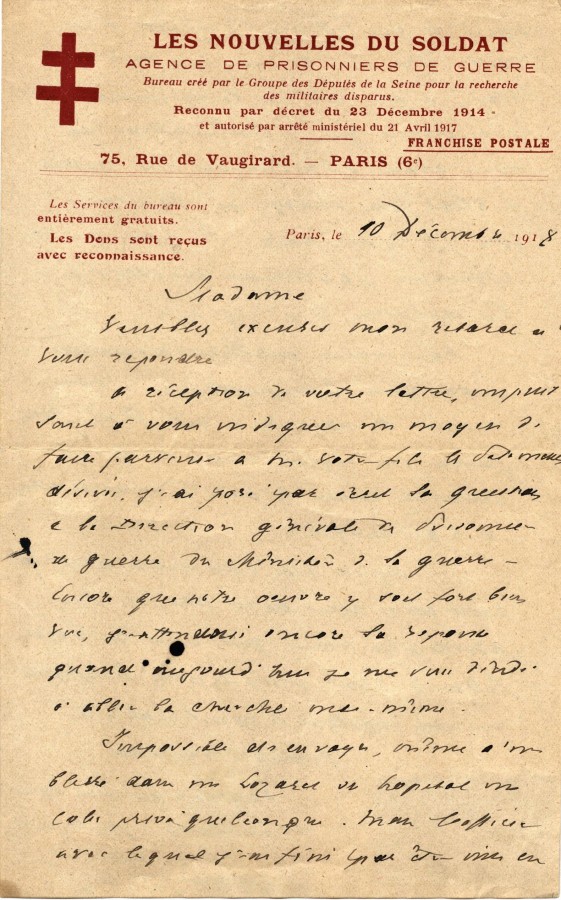 LES NOUVELLES DU SOLDAT
AGENCE DE PRISONNIERS DE GUERRE
Bureau créé par le Groupe des Députés de la Seine pour la recherche
des militaires disparus.
Reconnu par décret du 23 Décembre 1914
et autorisé par arrêté ministériel du 21 Avril 1917
FRANCHISE POSTALE
75, Rue de Vaugirard. — PARIS (6e)
Les Services du bureau sont
entièrement gratuits.
Les Dons sont reçus
avec reconnaissance.
Paris, le 10 Décembre 1918
Madame
Veuillez excuser mon retard à
vous répondre
A réception de votre lettre, impuis
sant à vous indiquer un moyen de
faire parvenir à M. votre fils le
désiré, j'ai posé par écrit la question
à la Direction générale de prisonniers
de guerre du Ministère de la guerre –
Encore que notre oeuvre y soit fort bien
vue, j'attendais encore la réponse
quand aujourd'hui je me suis décidé
à aller la chercher moi-même.
Impossible d'envoyer, même à un
blessé dans un Lazaret ou hopital un
colis privé quelconque. Mais l'officier
avec lequel j'ai fini par être mis en